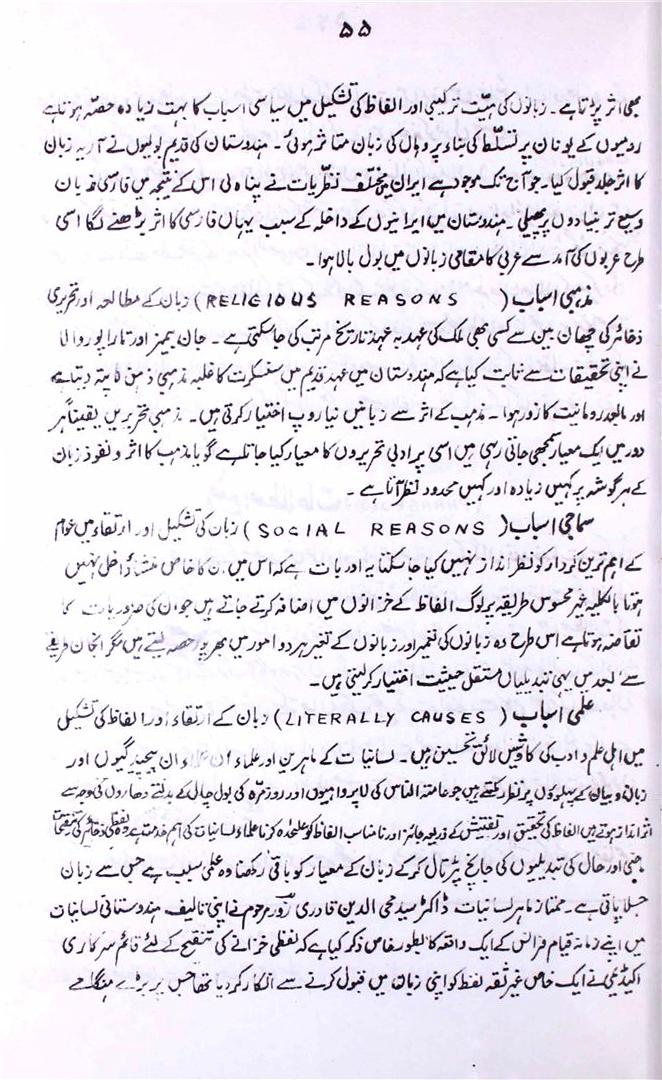 ۵۵
بھی اثر پڑتا ہے۔ زبانوں کی ہیّت ترکیبی اور الفاظ کی تشکیل میں سیاسی اسباب کا بہت زیادہ حصّہ ہوتا ہے
رومیوں کے یونان پر تسلّط کی بناء پر وہاں کی زبان متاثر ہوئی۔ ہندوستان کی قدیم بولیوں نے آریہ زبان
کا اثر جلد قبول کیا۔ جو آج تک موجود ہے ایران میں مختلف نظریات نے پناہ لی اس کے نتیجہ میں فارسی زبان
وسیع تر بنیادوں پر پھیلی۔ ہندوستان میں ایرانیوں کے داخلہ کے سبب یہاں فارسی کا اثر بڑھنے لگا اسی
طرح عربوں کی آمد سے عربی کا مقامی زبانوں میں بول بالا ہوا۔
مذہبی اسباب (RELIGIOUS REASONS) زبان کے مطالعہ اور تحریری
ذخائر کی چھان بین سے کسی بھی ملک کی عہد بہ عہد تاریخ مرتب کی جا سکتی ہے۔ جان بیمز اور تارا پور والا
نے اپنی تحقیقات سے ثابت کیا ہے کہ ہندوستان میں عہد قدیم میں سنسکرت کا غلبہ مذہبی ذہن کا پتہ دیتا ہے
اور مابعد رومانیت کا زور ہوا۔ مذہب کے اثر سے زبانیں نیا روپ اختیار کرتی ہیں۔ مذہبی تحریریں یقیناً ہر
دور میں ایک معیار سمجھی جاتی رہی ہیں اسی پر ادبی تحریروں کا معیار کیا جاتا ہے گویا مذہب کا اثر و نفوذ زبان
کے ہر گوشہ پر کہیں زیادہ اور کہیں محدود نظر آتا ہے۔
سماجی اسباب (SOCIAL REASONS) زبان کی تشکیل اور ارتقاء میں عوام
کے اہم ترین کردار کو نظر انداز نہیں کیا جا سکتا یہ اور بات ہے کہ اس میں ان کا خاص منشاء داخل نہیں
ہوتا بالکلیہ غیر محسوس طریقہ پر لوگ الفاظ کے خزانوں میں اضافہ کرتے جاتے ہیں جو ان کی ضروریات کا
تقاضہ ہوتا ہے اس طرح وہ زبانوں کی تعمیر اور زبانوں کے تغیر ہر دو امور میں بھرپور حصہ لیتے ہیں مگر انجان طریقے
سے بعد میں یہی تبدیلیاں مستقل حیثیت اختیار کر لیتی ہیں۔
علمی اسباب (LITERALLY CAUSES) زبان کے ارتقاء اور الفاظ کی تشکیل
میں اہل علم و ادب کی کاوشیں لائق تحسین ہیں۔ لسانیات کے ماہرین اور علماء ان پیچیدگیوں اور
زبان و بیان کے پہلوؤں پر نظر رکھتے ہیں جو عامتہ الناس کی لاپرواہیوں اور روزمرّہ کی بول چال کے بدلتے دھاروں کی وجہ سے
اثر انداز ہوتے ہیں الفاظ کی تحقیق اور تفتیش کے ذریعہ جائز اور نامناسب الفاظ کو علٰحدہ کرنا علماء لسانیات کی اہم خدمت ہے وہ لفظی ذخائر کی تنقیح
ماضی اور حال کی تبدیلیوں کی جانچ پڑتال کر کے زبان کے معیار کو باقی رکھنا وہ علمی سبب ہے جس سے زبان
جِلا پاتی ہے۔ ممتاز ماہر لسانیات ڈاکٹر سید محی الدین قادری زور مرحوم نے اپنی تالیف ہندوستانی لسانیات
میں اپنے زمانہ قیام فرانس کے ایک واقعہ کا بطور خاص ذکر کیا ہے کہ لفظی خزانے کی تنقیح کے لئے قائم سرکاری
اکیڈیمی نے ایک خاص غیر ثقہ لفظ کو اپنی زبان میں قبول کرنے سے انکار کر دیا تھا جس پر بڑے ہنگامے